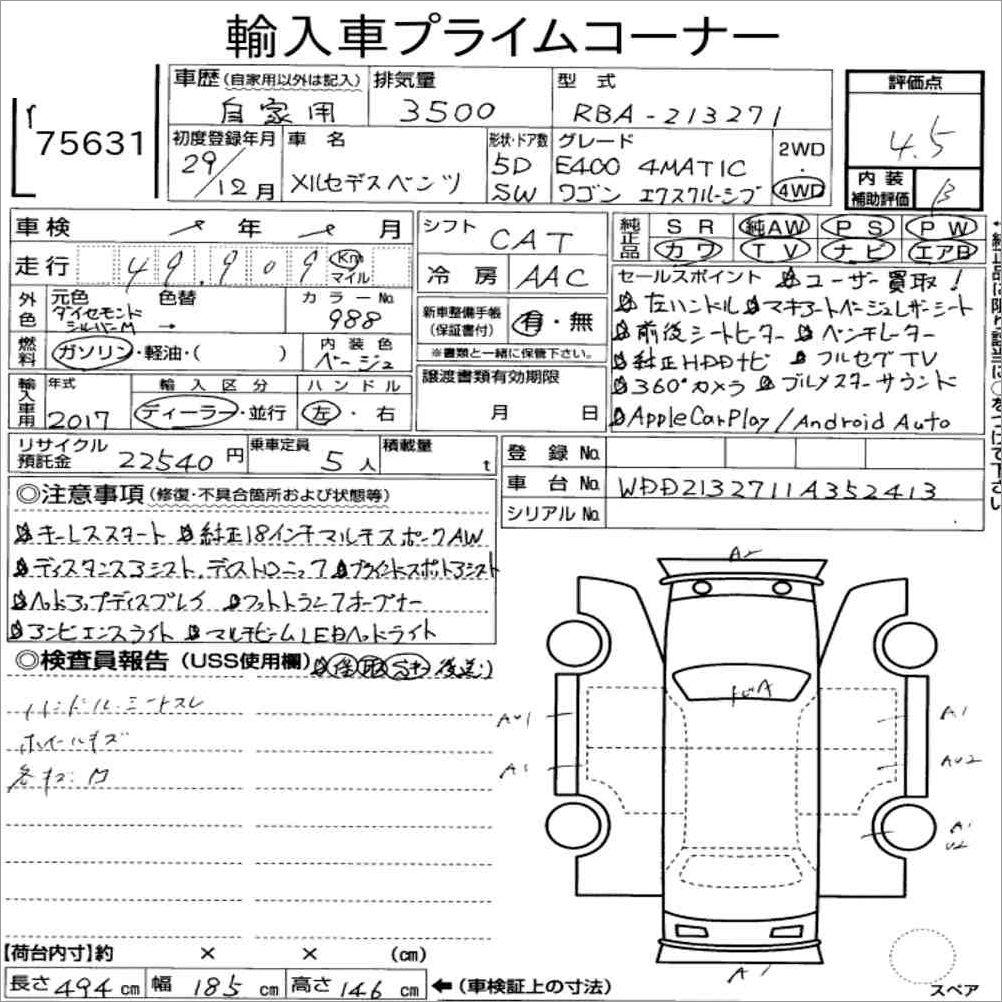 輸入車プライムコーナー
75631
車歴(自家用以外は記入) 自家用
排気量 3500
型式 RBA-213271
評価点 4.5
内装補助評価 B
初度登録年月 29/12月
車名 メルセデスベンツ
形状・ドア数 5D SW
グレード E400 4MATIC
ワゴン エクスクルーシブ
2WD 4WD
車検 年 月
走行 49,909 Km マイル
シフト CAT
冷房 AAC
純正品 SR 純AW PS PW
カワ TV ナビ エアB
外色 元色 ダイヤモンドシルバーM 色替 →
カラーNo. 988
燃料 ガソリン・軽油・( )
内装色 ベージュ
新車整備手帳(保証書付) 有・無
※書類と一緒に保管下さい。
輸入車用 年式 2017
輸入区分 ディーラー・並行
ハンドル 左・右
譲渡書類有効期限
月 日
セールスポイント ユーザー買取!
左ハンドル
前後シートヒーター ベンチレーター
純正HDDナビ フルセグTV
360°カメラ ブルメスターサウンド
AppleCarPlay/Android Auto
リサイクル預託金 22540円
乗車定員 5人
積載量 t
登録No.
車台No. WDD2132711A352413
シリアルNo.
◎注意事項(修復・不具合箇所および状態等)
キーレススタート 純正18インチマルチスポークAW
ディスタンスアシスト、ディストロニック ブラインドスポットアシスト
ヘッドアップディスプレイ フットトランクオープナー
アンビエンスライト マルチビームLEDヘッドライト
◎検査員報告(USS使用欄)
ハンドル・シートスレ
ホイールキズ
A2
AU1
A1
A1
AU2
A1
U2
A1
【荷台内寸】約 × × (cm)
長さ 494 cm 幅 185 cm 高さ 146 cm ←(車検証上の寸法)
スペア